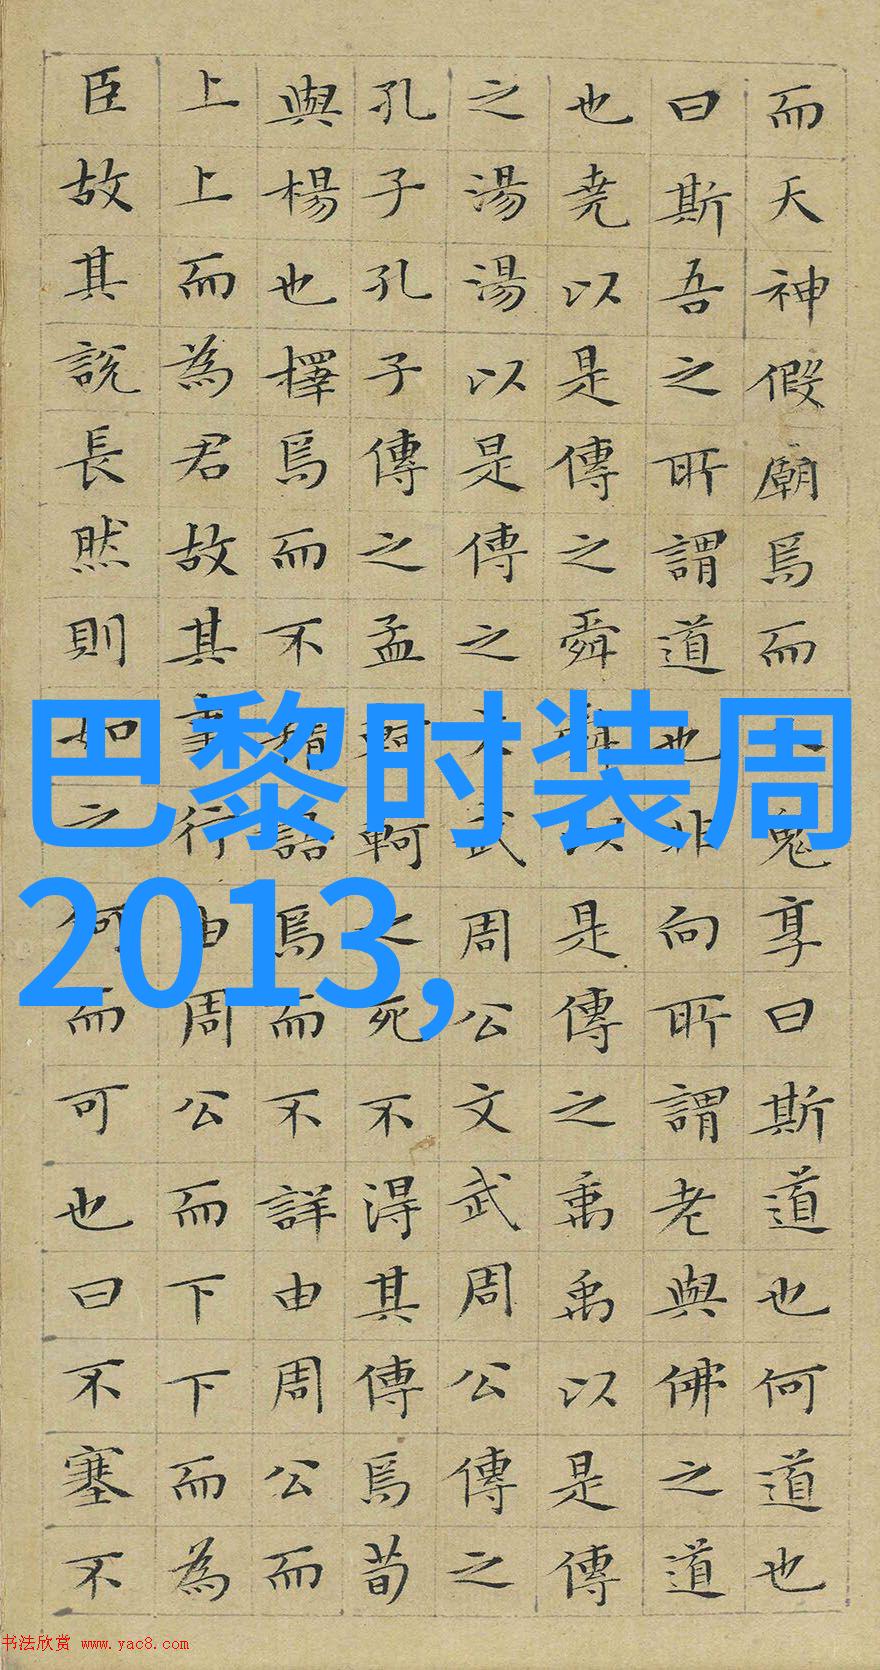 而天神假廟焉而鬼享曰斯道也何道也
曰斯吾之所謂道也非向所謂老與佛之道
也堯以是傳之舜舜以是傳之禹禹以是傳
之湯湯以是傳之文武周公文武周公傳之
孔子孔子傳之孟軻軻之死不得其傳焉荀
與楊也擇焉而不精語焉而不詳由周公而
上上而為君故其事行由周公而下下而為
臣故其說長然則如之何而可也曰不塞不
巴黎时装周
2013,
书法欣赏 www.yac8.com